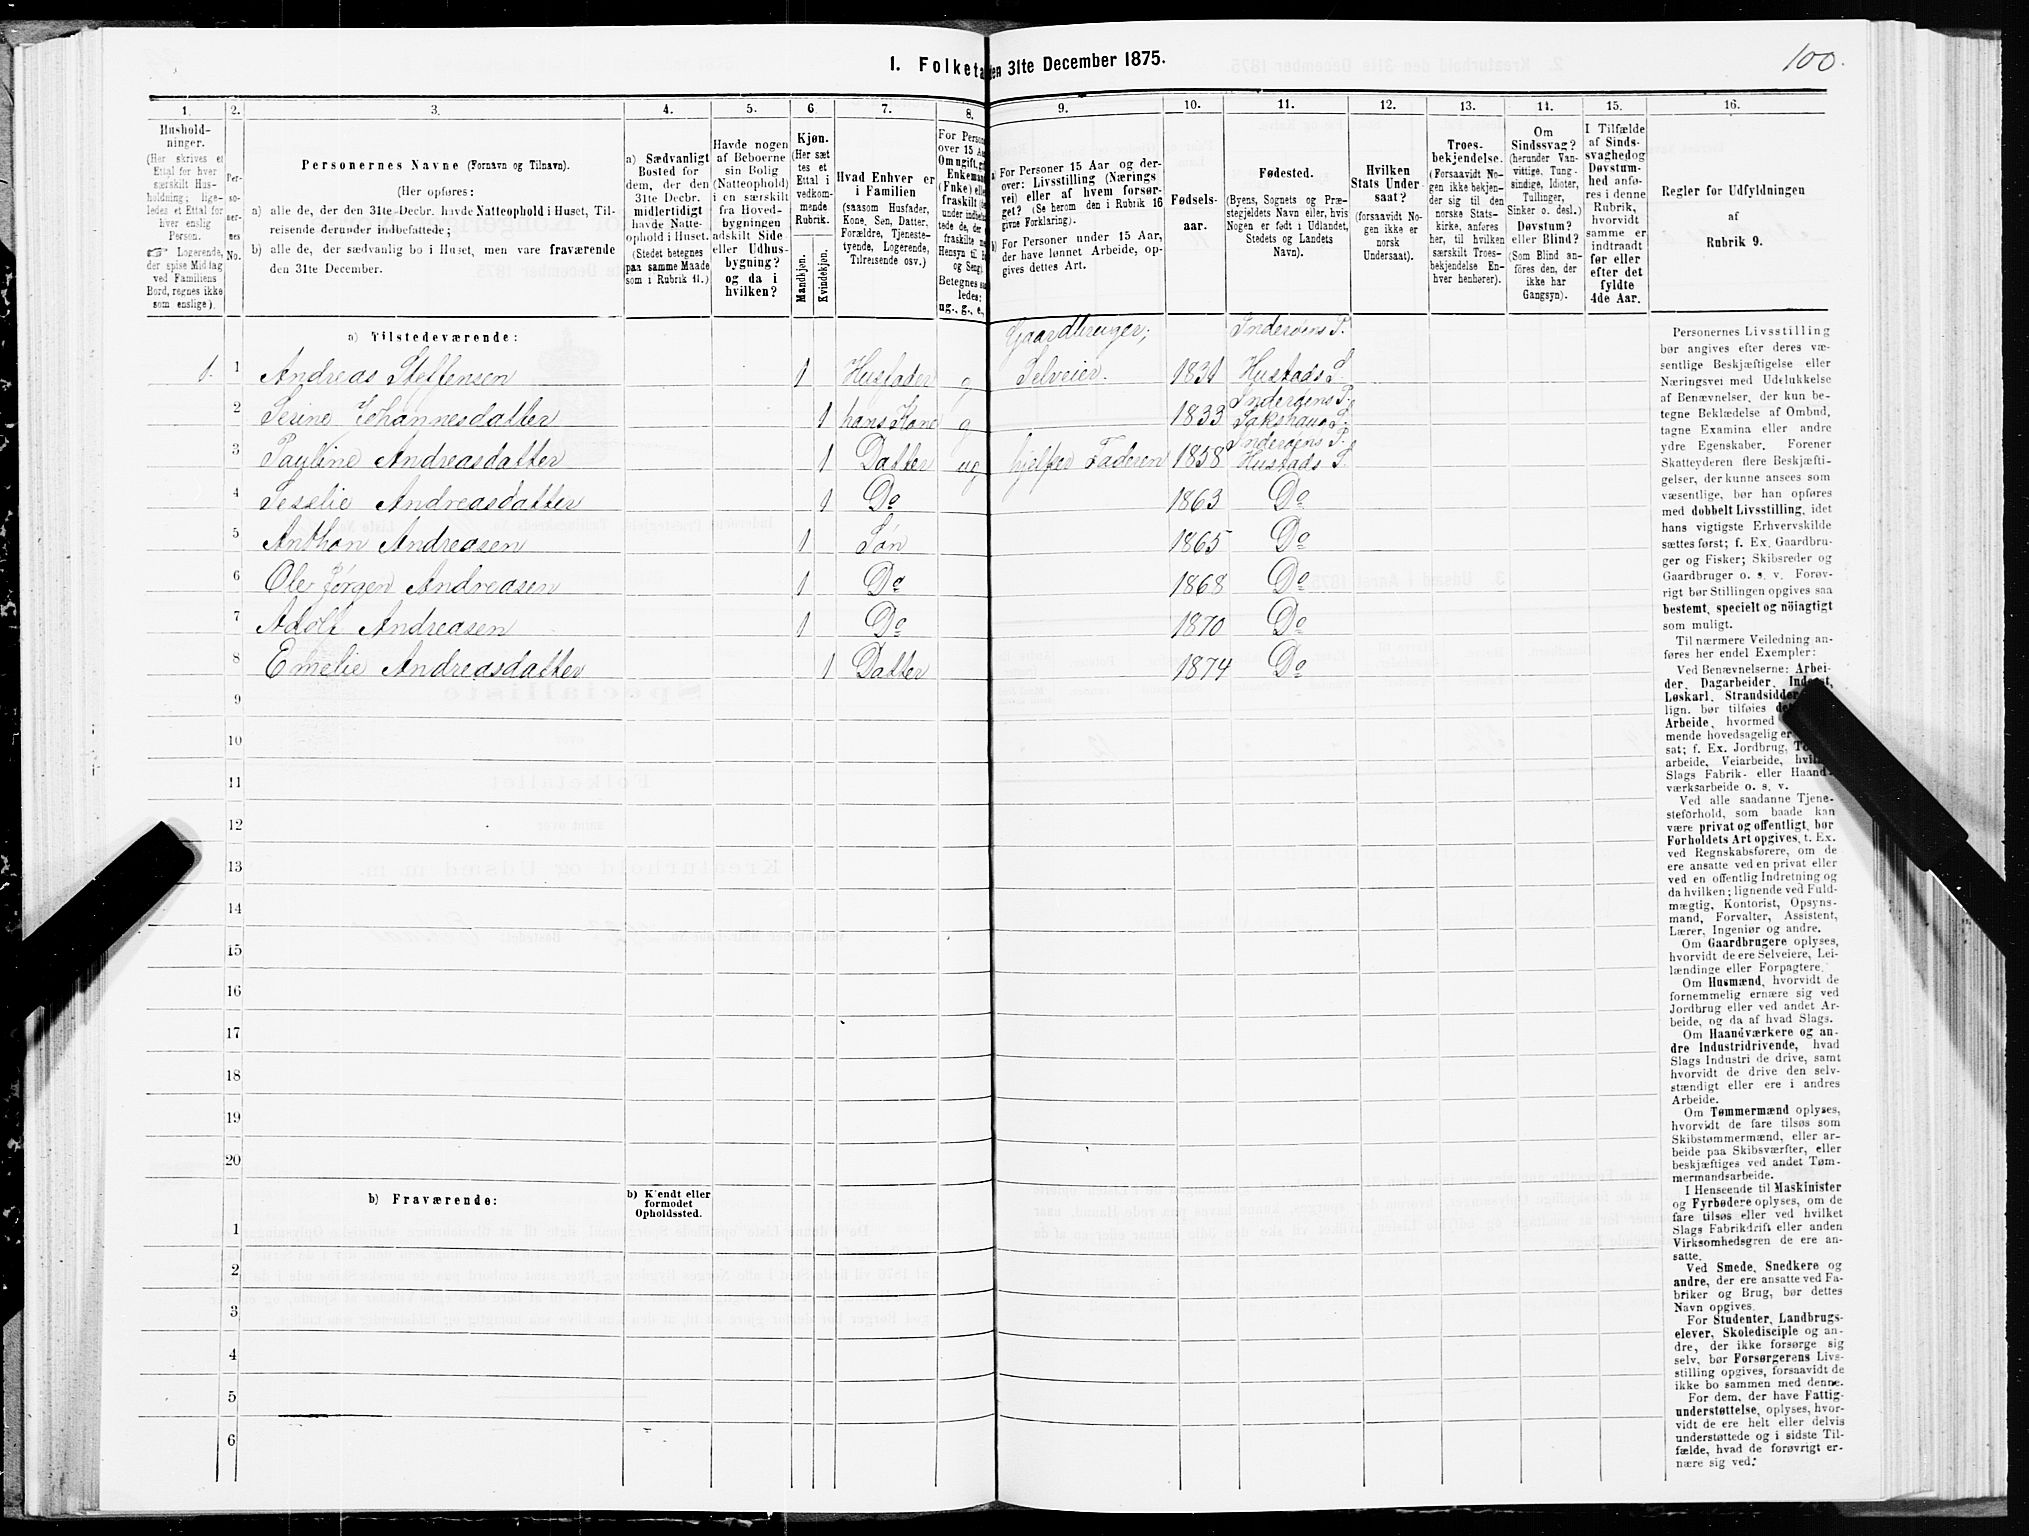 I. Folketa
en 31te December 1875.
100.
1. 2. 3. 4. 5. 6 7. 8. 9. 10. 11. 12. 13. 14. 15. 16.
Hushold-
ninger.
(Her skrives et
Ettal for hver
særskilt Hus-
holdning; lige-
ledes et Ettal for
hver enslig
Person.
☞ Logerende,
der spise Middag
ved Familiens
Bord, regnes ikke
som enslige).
Per-
so-
ner-
nes
No.
Personernes Navne (Fornavn og Tilnavn).
(Her opføres:
a) alle de, der den 31te Decbr. havde Natteophold i Huset, Til-
reisende derunder indbefattede;
b) alle de, der sædvanlig bo i Huset, men vare fraværende
den 31te December.
a) Sædvanligt
Bosted for
dem, der den
31te Decbr.
midlertidigt
havde Natte-
ophold i Huset.
(Stedet betegnes
paa samme Maade
som i Rubrik 11.)
Havde nogen
af Beboerne
sin Bolig
(Natteophold)
i en særskilt
fra Hoved-
bygningen
adskilt Side
eller Udhus-
bygning?
og da i
hvilken?
Kjøn.
(Her sæt
tes et
Ettal i
vedkom-
mende
Rubrik.
Mandkjøn.
Kvindekjøn.
Hvad Enhver er
i Familien
(saasom Husfader,
Kone, Søn, Datter,
Forældre, Tjeneste-
tyende, Logerende,
Tilreisende osv.)
For Person
over 15 Aa
Om ugift, gi
Enkeman
(Enke) elle
fraskilt
ledes:
ug., g., e.,
a) For Personer 15 Aar og der-
over: Livsstilling (Nærings
vei) eller af hvem forsør-
get? (Se herom den i Rubrik 16
givne Forklaring).
b) For Personer under 15 Aar,
der have lønnet Arbeide, op-
gives dettes Art.
Fødsels-
aar.
Fødested.
(Byens, Sognets og Præ-
stegjeldets Navn eller, hvis
Nogen er født i Udlandet,
Stedets og Landets
Navn).
Hvilken
Stats Under-
saat?
(forsaavidt No-
gen ikke er
norsk
Undersaat).
Troes-
bekjendelse.
(Forsaavidt No-
gen ikke bekjen-
der sig til den
norske Stats-
kirke, anføres
her, til hvilken
særskilt Troes-
bekjendelse En-
hver henhører).
Om
Sindssvag?
(herunder Van-
vittige, Tung-
sindige, Idioter,
Tullinger,
Sinker o. desl.)
Døvstum?
eller Blind?
(Som Blind an-
føres den, der
ikke har
Gangsyn).
I Tilfælde
af Sinds-
svaghed og
Døvstum-
hed anfø-
res i denne
Rubrik,
hvorvidt
samme er
indtraadt
før eller
efter det
fyldte
4de Aar.
Regler for Udfyldningen
af
Rubrik 9.
a) Tilstedeværende:
Gaardbruger, Inderøens P.
1. 1 Andreas Steffensen 1 Husfader g Selveier. 1831 Hustads S.
Inderøens P.
2 Serine Johannesdatter 1 hans Kone g 1833 Sakshaug S.
Inderøens P.
3 Pauline Andreasdatter 1 Datter ug hjelper Faderen 1858 Hustads S.
4 Seselie Andreasdatter 1 Do 1863 Do
5 Anthon Andreasen 1 Søn 1865 Do
6 Ole Jørgen Andreasen 1 Do 1868 Do
7 Adolf Andreasen 1 Do 1870 Do
8 Emelie Andreasdatter 1 Datter 1874 Do
9
10
11
12
13
14
15
16
17
18
19
20
b) Fraværende:
b) Kendt eller
formodet
Opholdssted.
1
2
3
4
5
6
Personernes Livsstilling
bør angives efter deres væ-
sentlige Beskjæftigelse eller
Næringsvei med Udelukkelse
af Benævnelser, der kun be-
tegne Beklædelse af Ombud,
tagne Examina eller andre
ydre Egenskaber. Forener
Skatteyderen flere Beskjæfti-
gelser, der kunne ansees som
væsentlige, bør han opføres
med dobbelt Livsstilling, idet
hans vigtigste Erhvervskilde
sættes først; f. Ex. Gaardbru-
ger og Fisker; Skibsreder og
Gaardbruger o. s. v. Forøv-
rigt bør Stillingen opgives saa
bestemt, specielt og nöiagtigt
som muligt.
Til nærmere Veiledning an-
føres her endel Exempler:
Ved Benævnelserne: Arbei-
der, Dagarbeider, Inderst,
Løskarl, Strandsidder
lign. bør tilføies de
Arbeide, hvormed
mende hovedsagelig er
sat; f. Ex. Jordbrug, To
arbeide, Veiarbeide, hvil
Slags Fabrik- eller Haand-
værksarbeide o. s. v.
Ved alle saadanne Tjene-
steforhold, som baade kan
være privat og offentligt, bør
Forholdets Art opgives, t. Ex.
ved Regnskabsførere, om de
ere ansatte ved en privat eller
ved en offentlig Indretning og
da hvilken; lignende ved Fuld-
mægtig, Kontorist, Opsyns-
mand, Forvalter, Assistent,
Lærer, Ingeniør og andre.
Om Gaardbrugere oplyses,
hvorvidt de ere Selveiere, Lei-
lændinge eller Forpagtere.
Om Husmænd, hvorvidt de
fornemmelig ernære sig ved
Jordbrug eller ved andet Ar-
beide, og da af hvad Slags.
Om Haandværkere og an-
dre Industridrivende, hvad
Slags Industri de drive, samt
hvorvidt de drive den selv-
stændigt eller ere i andres
Arbeide.
Om Tømmermænd oplyses,
hvorvidt de fare tilsøs som
Skibstømmermænd, eller ar-
beide paa Skibsværfter, eller
beskjæftiges ved andet Tøm-
mermandsarbeide.
I Henseende til Maskinister
og Fyrbødere oplyses, om de
fare tilsøs eller ved hvilket
Slags Fabrikdrift eller anden
Virksomhedsgren de ere an-
satte.
Ved Smede, Snedkere og
andre, der ere ansatte ved Fa-
briker og Brug, bør dettes
Navn opgives.
For Studenter, Landbrugs-
elever, Skoledisciple og an-
dre, der ikke forsørge sig
selv, bør Forsørgerens Livs-
stilling opgives, forsaavidt de
ikke bo sammen med denne.
For dem, der have Fattig-
understøttelse, oplyses, hvor-
vidt de ere helt eller delvis
understøttede og i sidste Til-
fælde, hvad de forøvrigt er-
nære sig ved.